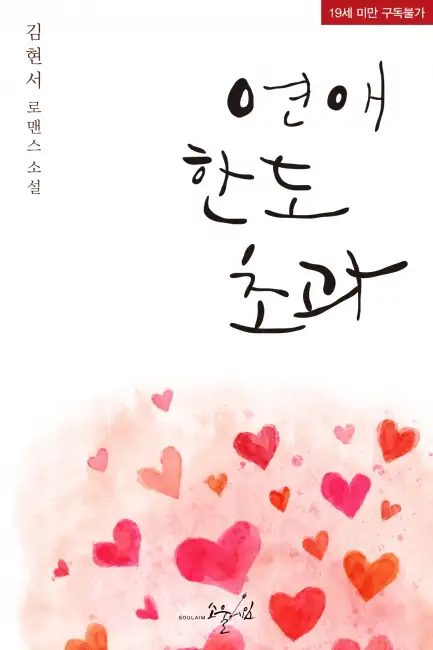 19세 미만 구독불가
김현서 로맨스 소설
연애
한도
초과
SOULAIM 소울에임